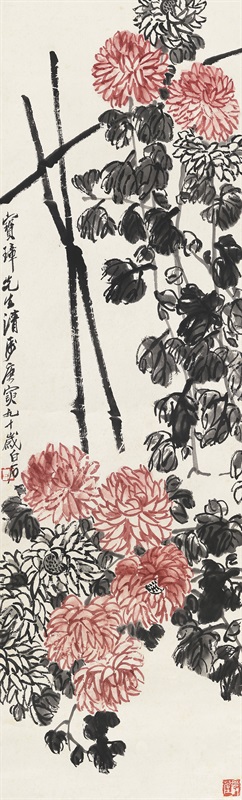 寶璋先生清屬庚寅九十歲白石